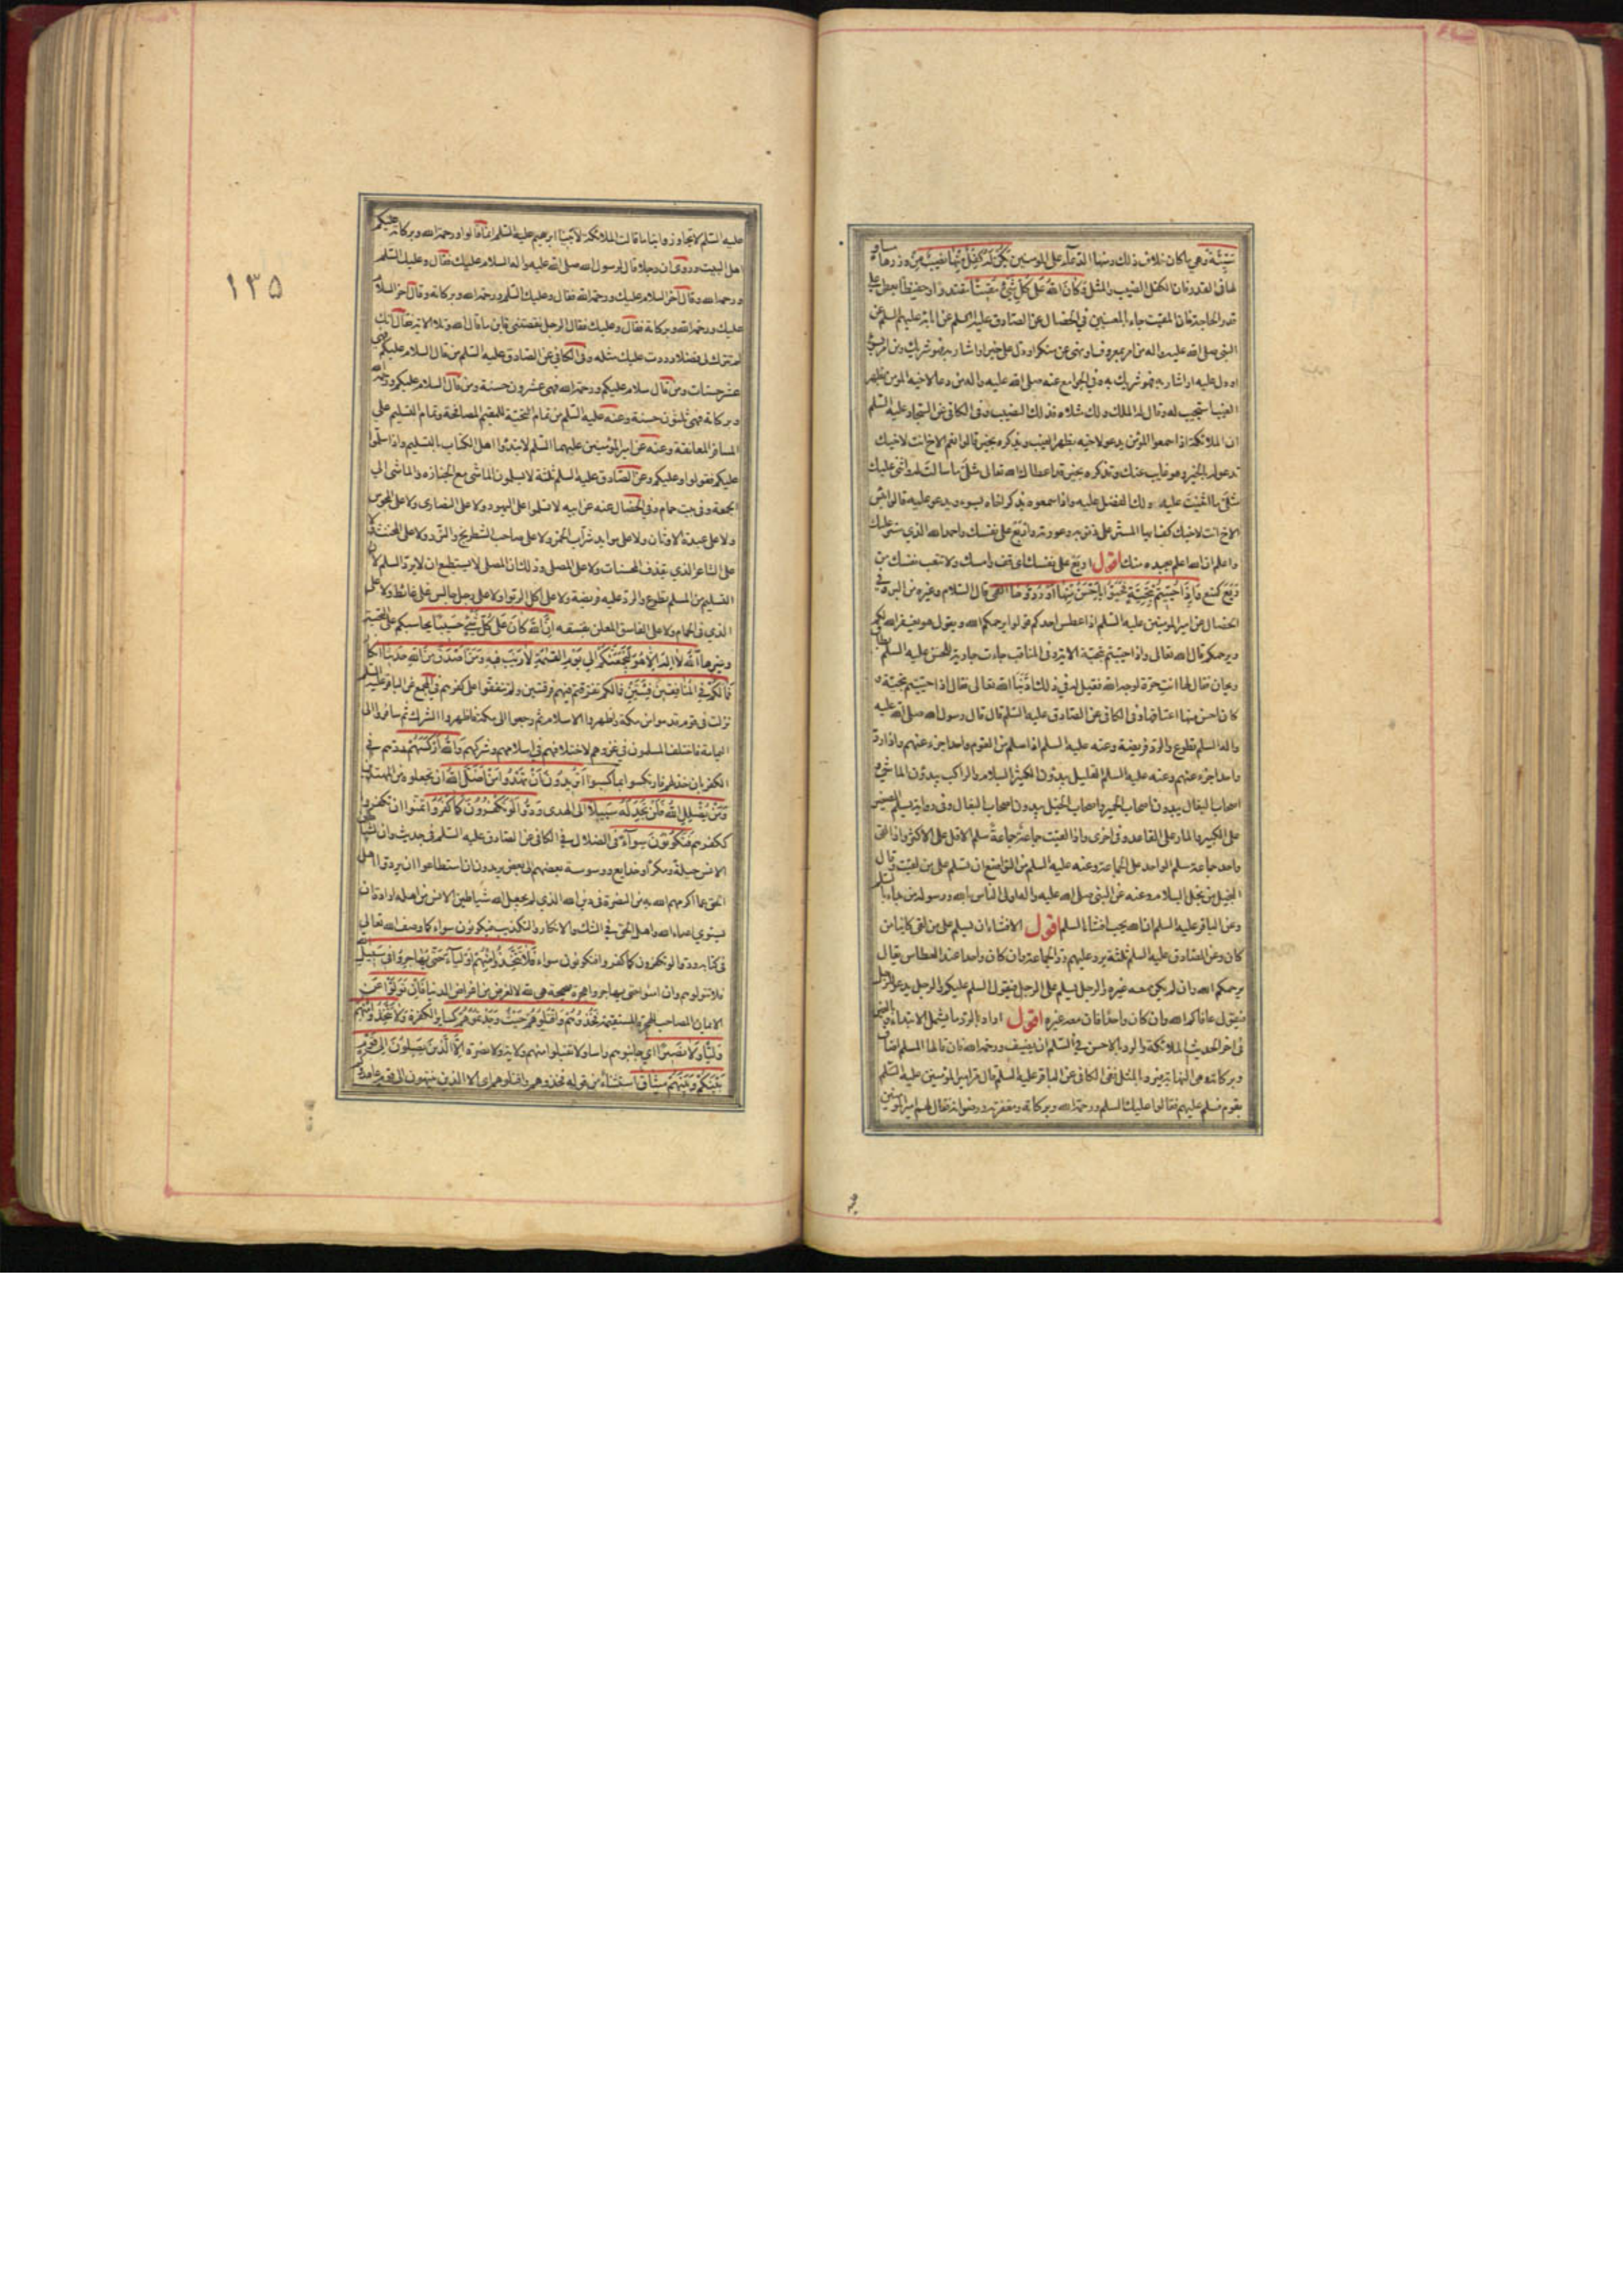 سيئة وهي ما كان خلاف ذلك ومنها الدعاء على المؤمنين يكن له كفل منها نصيب من وزرها مساو
لها في القدر فان الكفل النصيب والمثل وكان الله على كل شيء مقيتا مقتدرا وحفيظا يعطي على
قدر الحاجة فان المقيت جاء بالمعنيين في الخصال عن الصادق عليه السلم عن آبائه عليهم السلم عن
النبي صلى الله عليه واله من امر بمعروف او نهى عن منكر او دل على خير او اشار به فهو شريك ومن امر بسوء
او دل عليه او اشار به فهو شريك وفي الجوامع عنه صلى الله عليه واله من دعا لاخيه المؤمن بظهر
الغيب استجيب له وقال له الملك ولك مثلاه فذلك النصيب وفي الكافي عن السجاد عليه السلم
ان الملائكة اذا سمعوا المؤمن يدعو لاخيه بظهر الغيب ويذكره بخير قالوا نعم الاخ انت لاخيك
تدعو له بالخير وهو غايب عنك وتذكره بخير قد اعطاك الله تعالى مثلي ما سالت له واثنى عليك
مثلي ما اثنيت عليه ولك الفضل عليه واذا سمعوه يذكر اخاه بسوء ويدعو عليه قالوا بئس
الاخ انت لاخيك كف ايها المستر على ذنوبه وعورته واربع على نفسك واحمد الله الذي ستر عليك
واعلم ان الله اعلم بعبده منك اقول اربع على نفسك اي قف وامسك ولا تتعب نفسك من
ربع كمنع واذا حييتم بتحية فحيوا باحسن منها او ردوها القمي قال السلام وغيره من البر وفي
الخصال عن امير المؤمنين عليه السلم اذا عطس احدكم قولوا يرحمكم الله ويقول هو يغفر الله لكم
ويرحمكم قال الله تعالى واذا حييتم بتحية الاية وفي المناقب جاءت جارية للحسن عليه السلم بطاق
ريحان فقال لها انت حرة لوجه الله فقيل له في ذلك فقال ادبنا الله تعالى فقال اذا حييتم بتحية و
كان احسن منها اعتاقها وفي الكافي عن الصادق عليه السلم قال قال رسول الله صلى الله عليه
واله السلم تطوع والرد فريضة وعنه عليه السلم اذا سلم من القوم واحد اجزء عنهم واذا رد
واحد اجزء عنهم وعنه عليه السلم القليل يبدؤن الكثير بالسلام والراكب يبدؤن الماشي و
اصحاب البغال يبدون اصحاب الحمير واصحاب الخيل يبدون اصحاب البغال وفي رواية يسلم الصغير
على الكبير والمار على القاعد وفي اخرى واذا لقيت جماعة جماعة سلم الاقل على الاكثر واذا لقي
واحد جماعة سلم الواحد على الجماعة وعنه عليه السلم من التواضع ان تسلم على من لقيت وقال
البخيل من بخل بالسلام وعنه عن النبي صلى الله عليه واله اولى الناس بالله ورسوله من بدء بالسلم
وعن الباقر عليه السلم ان الله يحب افشاء السلم اقول الافشاء ان يسلم على من لقي كاينا من
كان وعن الصادق عليه السلم ثلثة يرد عليهم رد الجماعة وان كان واحدا عند العطاس يقال
يرحمكم الله وان لم يكن معه غيره والرجل يسلم على الرجل فيقول السلم عليكم والرجل يدعو للرجل
فيقول عافاكم الله وان كان واحدا فان معه غيره اقول اراد بالرد ما يشمل الابتداء
في اخر الحديث الملائكة والرد بالاحسن في السلم ان يضيف ورحمة الله فان قالها المسلم اضاف
وبركاته وهي النهاية فيرد بالمثل ففي الكافي عن الباقر عليه السلم قال مر امير المؤمنين عليه السلم
بقوم فسلم عليهم فقالوا عليك السلم ورحمة الله وبركاته ومغفرته ورضوانه فقال لهم امير المؤمنين
١٣٥
عليه السلم لا تجاوزوا بنا ما قالت الملائكة لابينا ابرهيم عليه السلم انما قالوا رحمة الله وبركاته عليكم
اهل البيت وروى ان رجلا قال لرسول الله صلى الله عليه واله السلام عليك فقال وعليك السلم
ورحمة الله وقال آخر السلام عليك ورحمة الله فقال وعليك السلم ورحمة الله وبركاته وقال آخر السلام
عليك ورحمة الله وبركاته فقال وعليك فقال الرجل نقصتني فاين ما قال الله وتلا الاية فقال انك
لم تترك لي فضلا ورددت عليك مثله وفي الكافي عن الصادق عليه السلم من قال السلام عليكم فهي
عشر حسنات ومن قال سلام عليكم ورحمة الله فهي عشرون حسنة ومن قال السلام عليكم ورحمة الله
وبركاته فهي ثلثون حسنة وعنه عليه السلم من تمام التحية للمقيم المصافحة وتمام التسليم على
المسافر المعانقة وعنه عن امير المؤمنين عليهما السلم لا تبدؤا اهل الكتاب بالتسليم واذا سلموا
عليكم فقولوا وعليكم وعن الصادق عليه السلم ثلثة لا يسلمون الماشي مع الجنازه والماشي الى
الجمعة وفي بيت حمام وفي الخصال عنه عن ابيه لا تسلموا على اليهود ولا على النصارى ولا على المجوس
ولا على عبدة الاوثان ولا على موايد شراب الخمر ولا على صاحب الشطرنج والنرد ولا على المخنث ولا
على الشاعر الذي يقذف المحصنات ولا على المصلي وذلك ان المصلي لا يستطيع ان لا يرد السلم لان
التسليم من المسلم تطوع والرد عليه فريضة ولا على آكل الربوا ولا على رجل جالس على غائط ولا على
الذي في الحمام ولا على الفاسق المعلن بفسقه ان الله كان على كل شيء حسيبا يحاسبكم على التحية
وغيرها الله لا اله الا هو ليجمعنكم الى يوم القيمة لا ريب فيه ومن اصدق من الله حديثا انكار
فما لكم في المنافقين فئتين فما لكم تفرقتم فيهم فرقتين ولم تتفقوا على كفرهم في المجمع عن الباقر عليه السلم
نزلت في قوم قدموا من مكة واظهروا الاسلام ثم رجعوا الى مكة فاظهروا الشرك ثم سافروا الى
اليمامة فاختلف المسلمون في غزوهم لاختلافهم في اسلامهم وشركهم والله اركسهم ردهم في
الكفر بان خذلهم فارتكسوا بما كسبوا اتريدون ان تهدوا من اضل الله ان تجعلوه من المهتدين
ومن يضلل الله فلن تجد له سبيلا الى الهدى ودوا لو تكفرون كما كفروا تمنوا ان تكفروا
ككفرهم فتكونون سواء في الضلال في الكافي عن الصادق عليه السلم في حديث وان لشياطين
الانس حيلة ومكرا وخدايع ووسوسة بعضهم الى بعض يريدون ان استطاعوا ان يردوا اهل
الحق عما اكرمهم الله به من النصرة في دين الله الذي لم يجعل الله شياطين الانس من اهله ارادة ان
يستوي اعداء الله واهل الحق في الشك والانكار والتكذيب فيكونون سواء كما وصف الله تعالى
في كتابه ودوا لو تكفرون كما كفروا فتكونون سواء فلا تتخذوا منهم اولياء حتى يهاجروا في سبيل الله
فلا تتولوهم وان امنوا حتى يهاجروا هجرة صحيحة هي لله لا لغرض من اغراض الدنيا فان تولوا عن
الايمان المصاحب للهجرة المستقيمة فخذوهم واقتلوهم حيث وجدتموهم كساير الكفرة ولا تتخذوا منهم
وليا ولا نصيرا اي جانبوهم راسا ولا تقبلوا منهم ولاية ولا نصرة الا الذين يصلون الى قوم
بينكم وبينهم ميثاق استثناء من قوله فخذوهم واقتلوهم اي الا الذين ينتهون الى قوم عاهدوكم